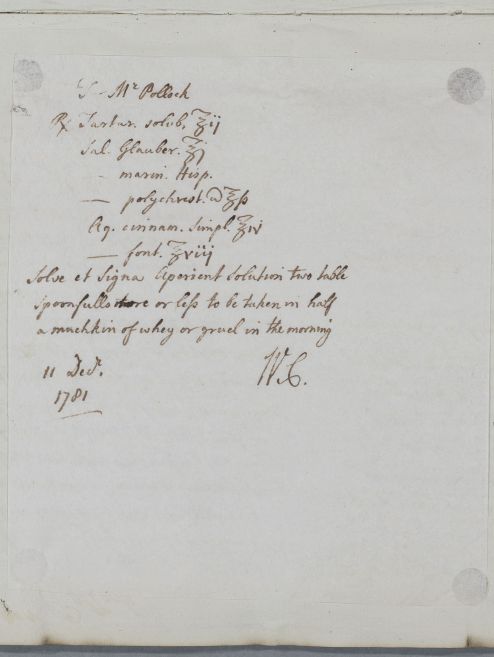 Mr Pollock
℞ Tartar. solub. ℥ij
Sal. Glauber. ℥j
— marin. Hisp.
— polychrest. a ℥ſs
Aq. cinnam. simpl. ℥iv
— font. ℥viij
Solve et Signa Aperient Solution two table
spoonfulls more or leſs to be taken in half
a mutchkin of whey or gruel in the morning
11 Decr.
1781
W. C.